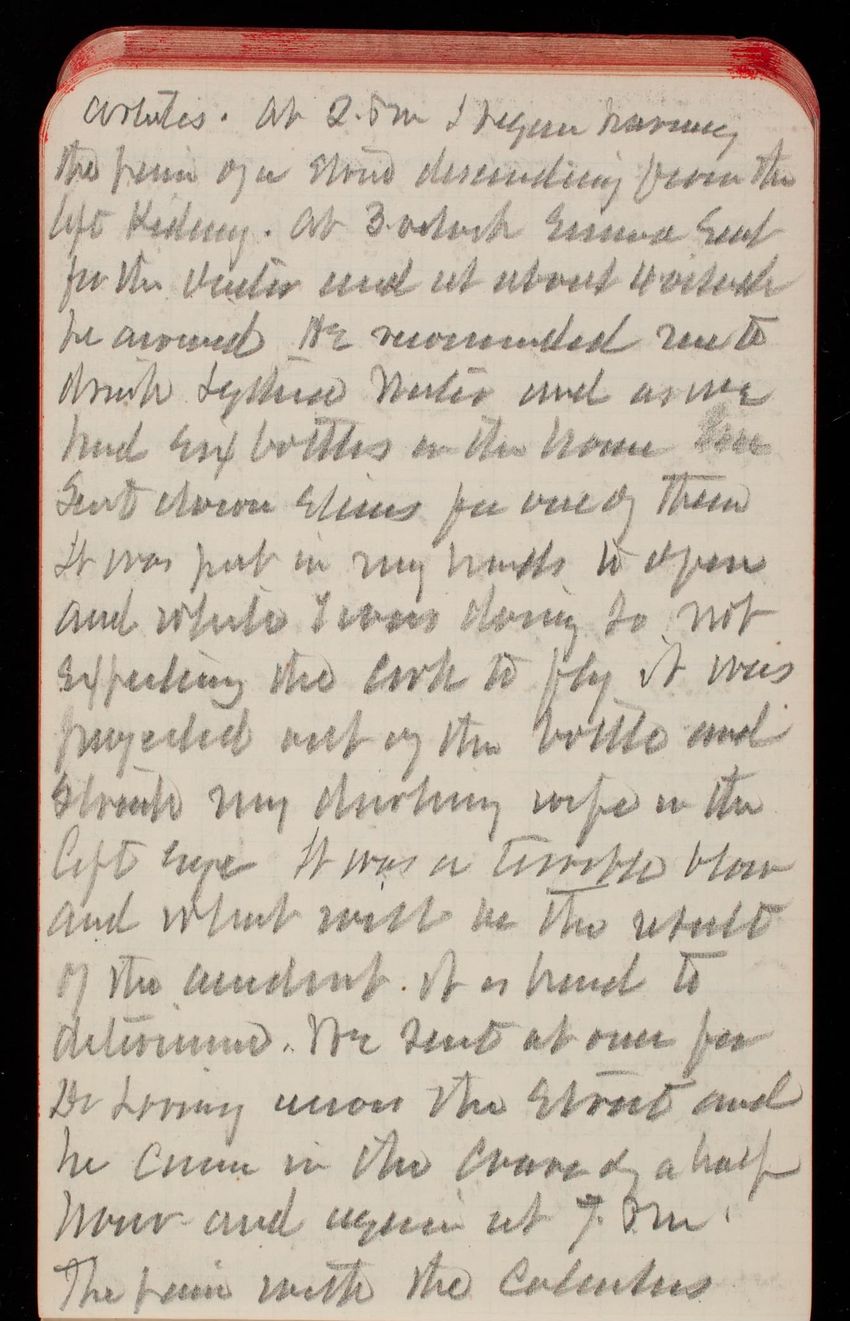 at 2 P.M. I began having
the pain of a stone descending from the
left Kidney. At 3 o'clock Emma sent
for the Doctor and at about 4 o'clock
he arrived He recommended me to
drink Lythia Water and as we
had six bottles in the house
sent down for one of them
It was put in my hands to open
and while I was doing so not
expecting the cork to fly it was
projected out of the bottle and
struck my darling wife in the
left eye It was a terrible blow
and what will be the result
of the accident it is hard to
determine. We sent at once for
Dr Loring across the street and
he came in the course of a half
hour and again at 7. P.M.
The pain with the Calculus